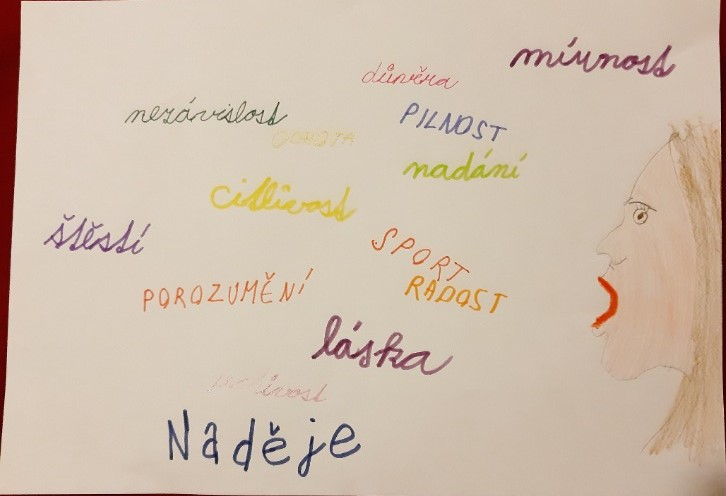 mírnost
důvěra
nezávislost
PILNOST
nadání
citlivost
štěstí
SPORT
POROZUMĚNÍ
RADOST
láska
Naděje